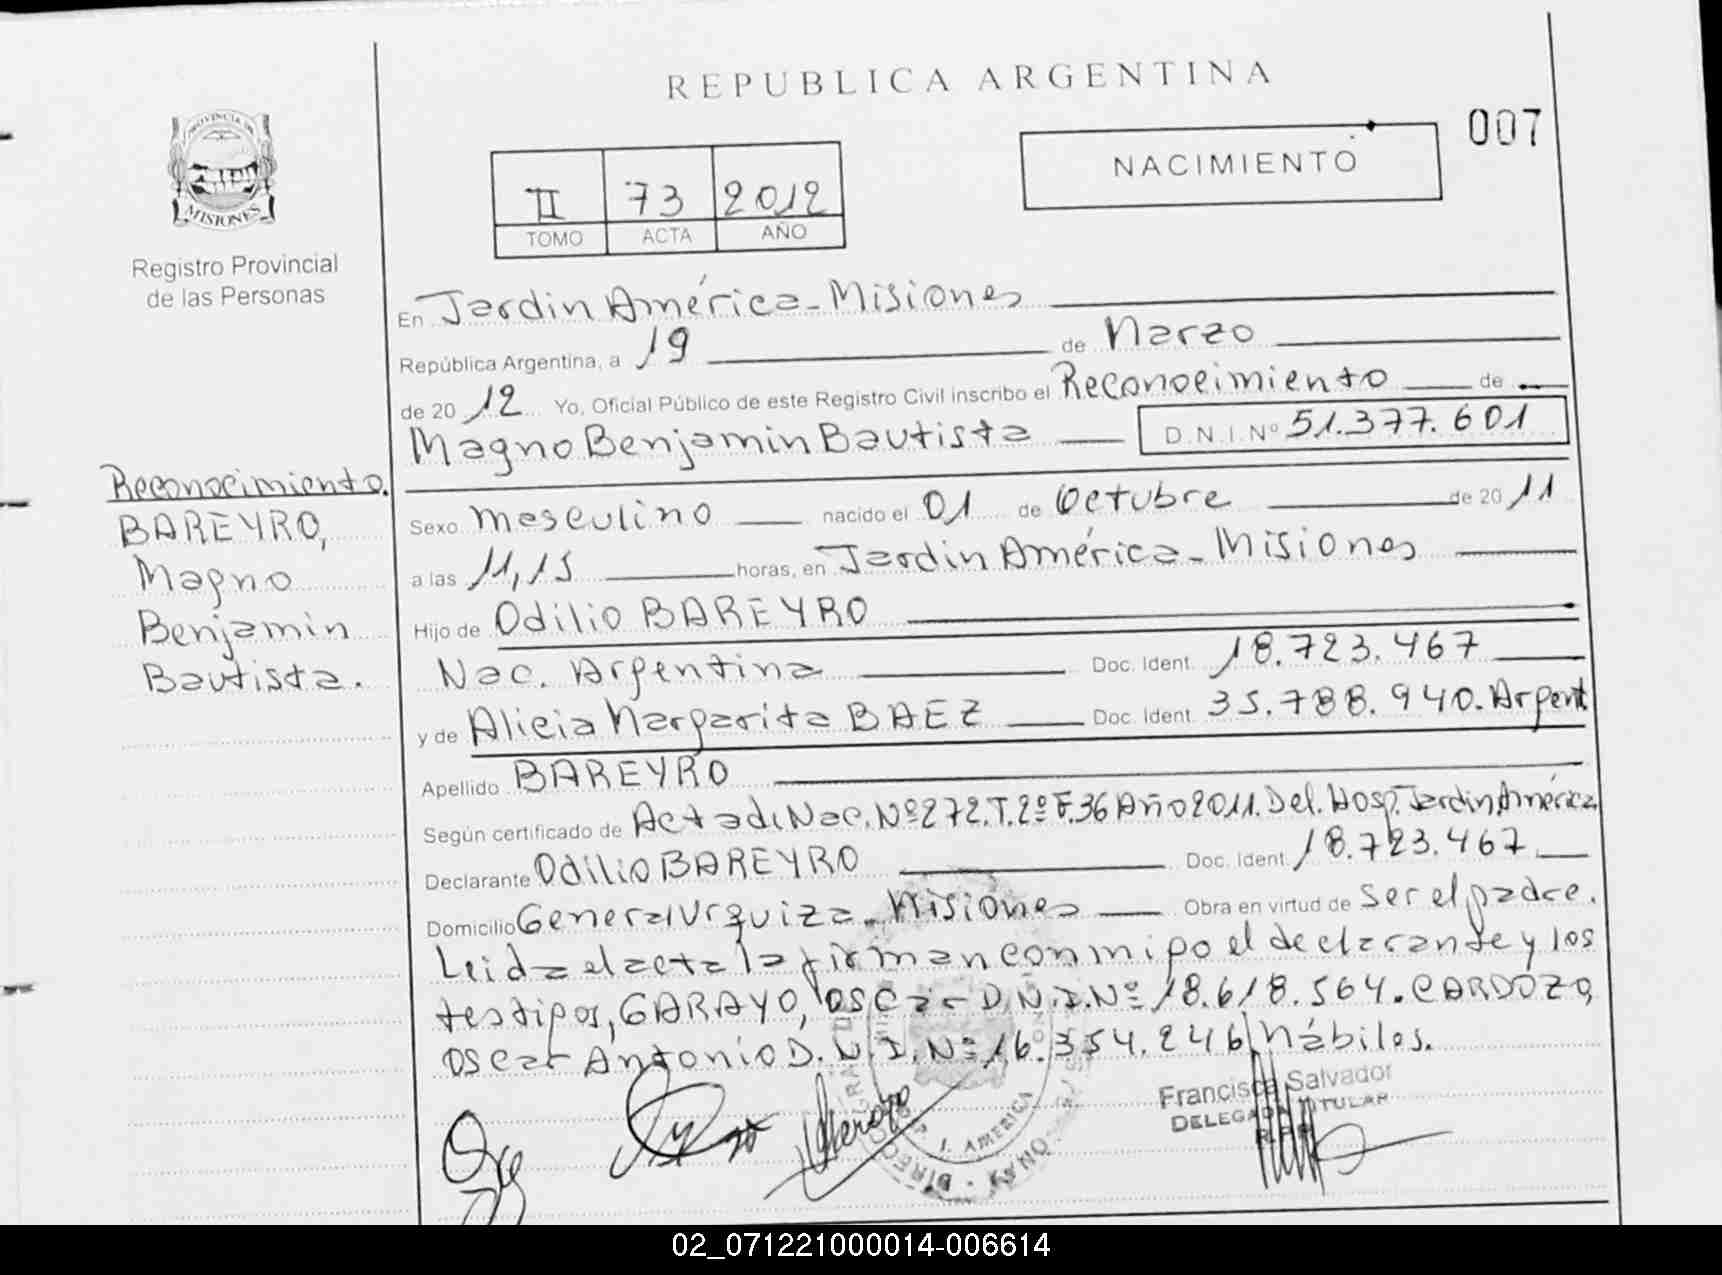 REPUBLICA ARGENTINA
007
NACIMIENTO
PROVINCIA DE
MISIONES
Registro Provincial
de las Personas
II 73 2012
TOMO ACTA AÑO
En Jardin América - Misiones
República Argentina, a 19 de Marzo
de 20 12 Yo, Oficial Público de este Registro Civil inscribo el Reconocimiento de
Magno Benjamin Bautista D.N.I.Nº 51.377.601
Reconocimiento.
BAREYRO,
Magno
Benjamin
Bautista.
Sexo masculino nacido el 01 de Octubre de 20 11
a las 11,15 horas, en Jardin América - Misiones
Hijo de Odilio BAREYRO
Nac. Argentina Doc. Ident. 18.723.467
y de Alicia Margarita BAEZ Doc. Ident. 35.788.940. Argent
Apellido BAREYRO
Según certificado de Acta de Nac. Nº 272. T. 2º F. 36 Año 2011. Del. Hosp. Jardin América
Declarante Odilio BAREYRO Doc. Ident. 18.723.467
Domicilio General Urquiza - Misiones Obra en virtud de ser el padre.
Leida el acta la firman conmigo el declarante y los
testigos, GARAYO, Oscar D.N.I. Nº 18.618.564. CARDOZO,
Oscar Antonio D.N.I. Nº 16.354.246 hábiles.
Francisca Salvador
DELEGADA TITULAR
R.P.P.
J. AMERICA
02_071221000014-006614